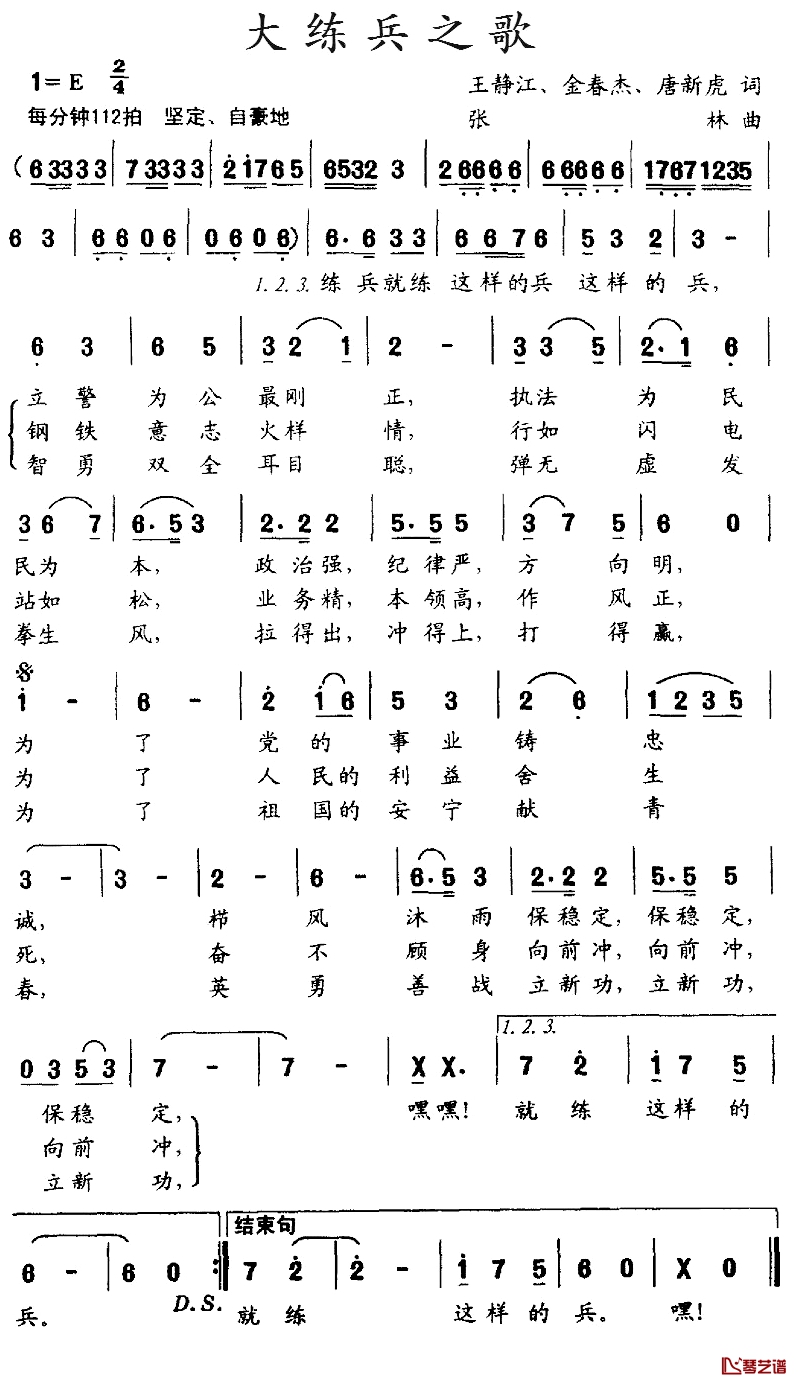 大练兵之歌
1=E 2/4
王静江、金春杰、唐新虎 词
每分钟112拍 坚定、自豪地
张 林 曲
(6 3 3 3 3 | 7 3 3 3 3 | 2 1 7 6 5 | 6 5 3 2 3 | 2 6 6 6 6 | 6 6 6 6 6 | 1 7 6 7 1 2 3 5 |
6 3 | 6 6 0 6 | 0 6 0 6) | 6· 6 3 3 | 6 6 7 6 | 5 3 2 | 3 - |
1. 2. 3. 练 兵就练 这样的兵 这样 的 兵,
6 3 | 6 5 | 3 2 1 | 2 - | 3 3 5 | 2· 1 6 |
立 警 为 公 最刚 正, 执法 为 民
钢 铁 意 志 火样 情, 行如 闪 电
智 勇 双 全 耳目 聪, 弹无 虚 发
3 6 7 | 6· 5 3 | 2· 2 2 | 5· 5 5 | 3 7 5 | 6 0 |
民为 本, 政治强, 纪律严, 方 向明,
站如 松, 业务精, 本领高, 作 风正,
拳生 风, 拉得出, 冲得上, 打 得赢,
1 - | 6 - | 2 1 6 | 5 3 | 2 6 | 1 2 3 5 |
为 了 党 的 事 业 铸 忠
为 了 人 民的 利 益 舍 生
为 了 祖 国的 安 宁 献 青
3 - | 3 - | 2 - | 6 - | 6· 5 3 | 2· 2 2 | 5· 5 5 |
诚, 栉 风 沐 雨 保稳定, 保稳定,
死, 奋 不 顾 身 向前冲, 向前冲,
春, 英 勇 善 战 立新功, 立新功,
1. 2. 3.
0 3 5 3 | 7 - | 7 - | X X. | 7 2 | 1 7 5 |
保稳 定, 嘿嘿! 就 练 这样 的
向前 冲,
立新 功,
结束句
6 - | 6 0 :| 7 2 | 2 - | 1 7 5 | 6 0 | X 0 |
兵。 D.S. 就 练 这 样 的 兵。 嘿!
琴艺谱